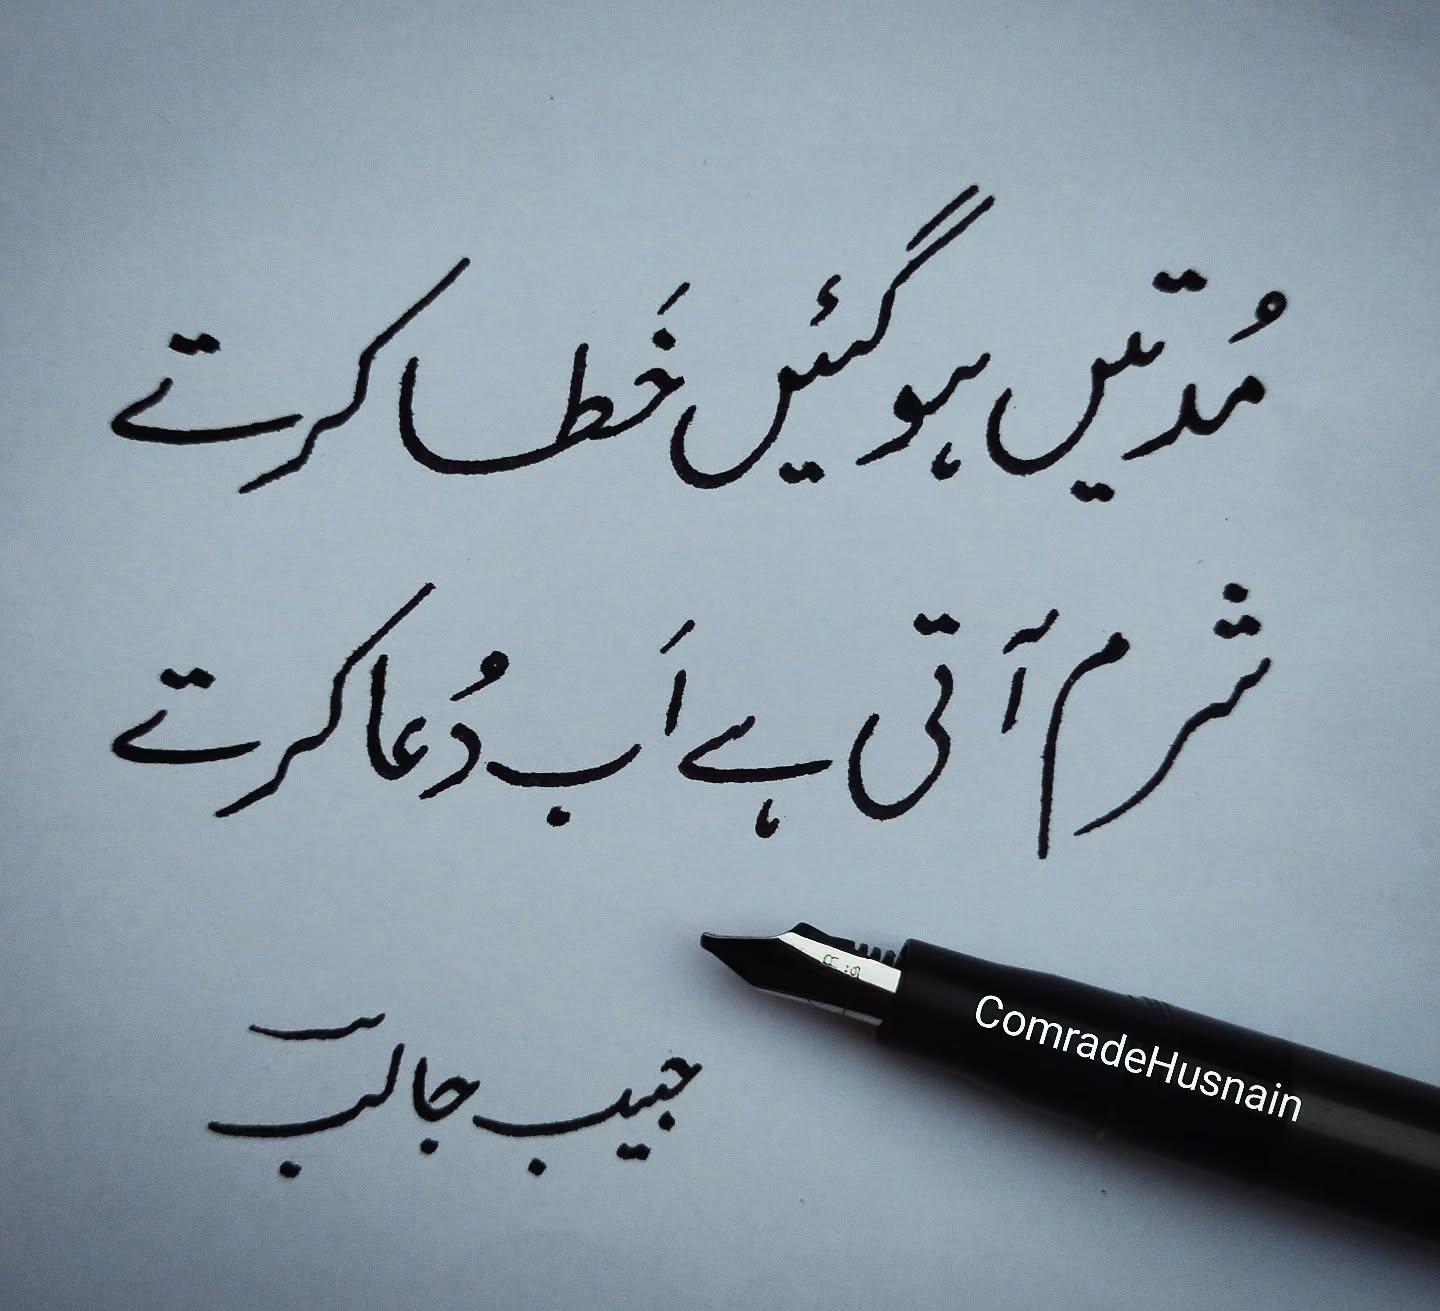 مُدّتیں ہو گئیں خَطا کرتے
شرم آتی ہے اَب دُعا کرتے
حبیب جالب
ComradeHusnain